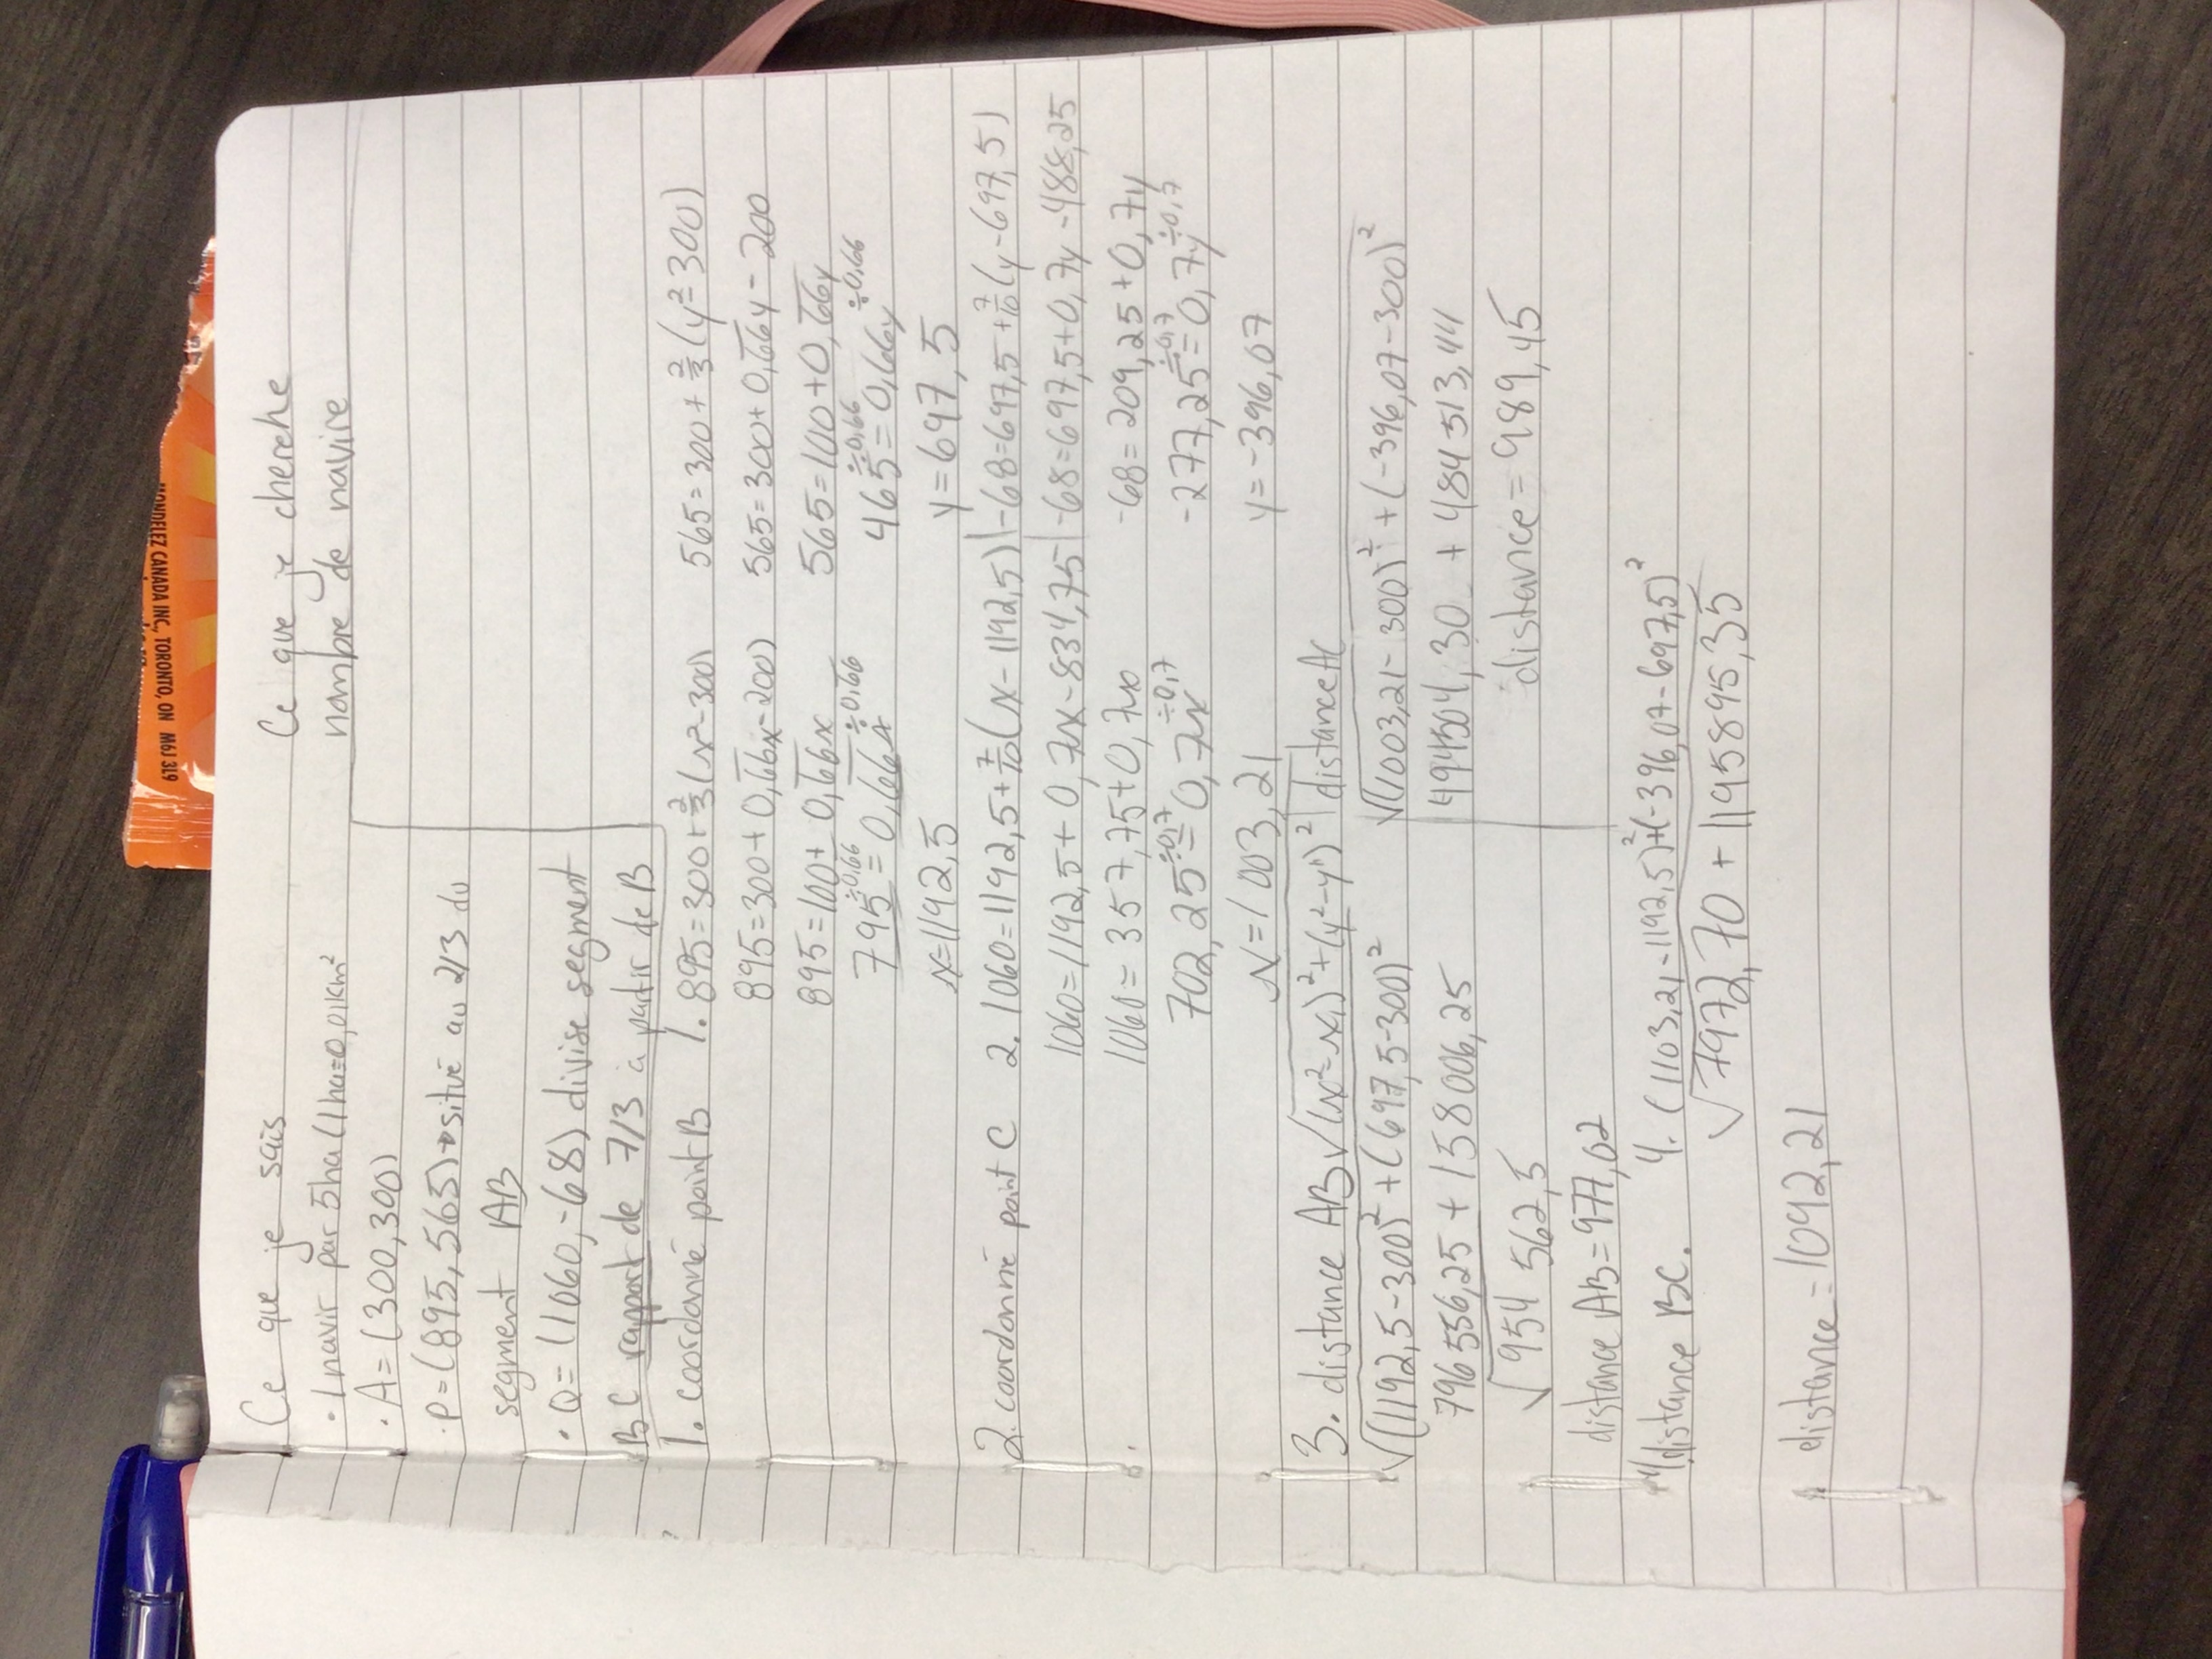 MONDELEZ CANADA INC, TORONTO, ON M6J 3L9
Ce que je sais
Ce que je cherche
nombre de navire
• 1 navir par 5ha (1ha=0,01km²
• A = (300,300)
• P = (895, 565) → situé au 2/3 du
segment AB
• Q = (1060, -68) divise segment
BC rapport de 7/3 à partir de B
1. coordonné point B
1. 895 = 300 + 2/3 (x² - 300)
895 = 300 + 0,66x - 200)
895 = 100 + 0,66x
795 ÷0,66 = 0,66x ÷0,66
x = 1192,5
565 = 300 + 2/3 (y² - 300)
565 = 300 + 0,66y - 200
565 = 100 + 0,66y
465 ÷0,66 = 0,66y ÷0,66
y = 697,5
2. coordonné point C
2. 1060 = 1192,5 + 7/10 (x - 1192,5)
1060 = 1192,5 + 0,7x - 834,75
1060 = 357,75 + 0,7x
702,25 ÷0,7 = 0,7x ÷0,7
x = 1003,21
-68 = 697,5 + 7/10 (y - 697,5)
-68 = 697,5 + 0,7y - 488,25
-68 = 209,25 + 0,7y
-277,25 ÷0,7 = 0,7y ÷0,7
y = -396,07
3. distance AB √(x² - x₁)² + (y² - y¹)²
√(1192,5 - 300)² + (697,5 - 300)²
796 556,25 + 158 006,25
√954 562,5
distance AB = 977,02
distance AC
√(1003,21 - 300)² + (-396,07 - 300)²
494504,30 + 484 513,44
distance = 989,45
4/distance BC.
4. (1103,21 - 1192,5)² + (-396,07 - 697,5)²
√7972,70 + 1195895,35
distance = 1092,21